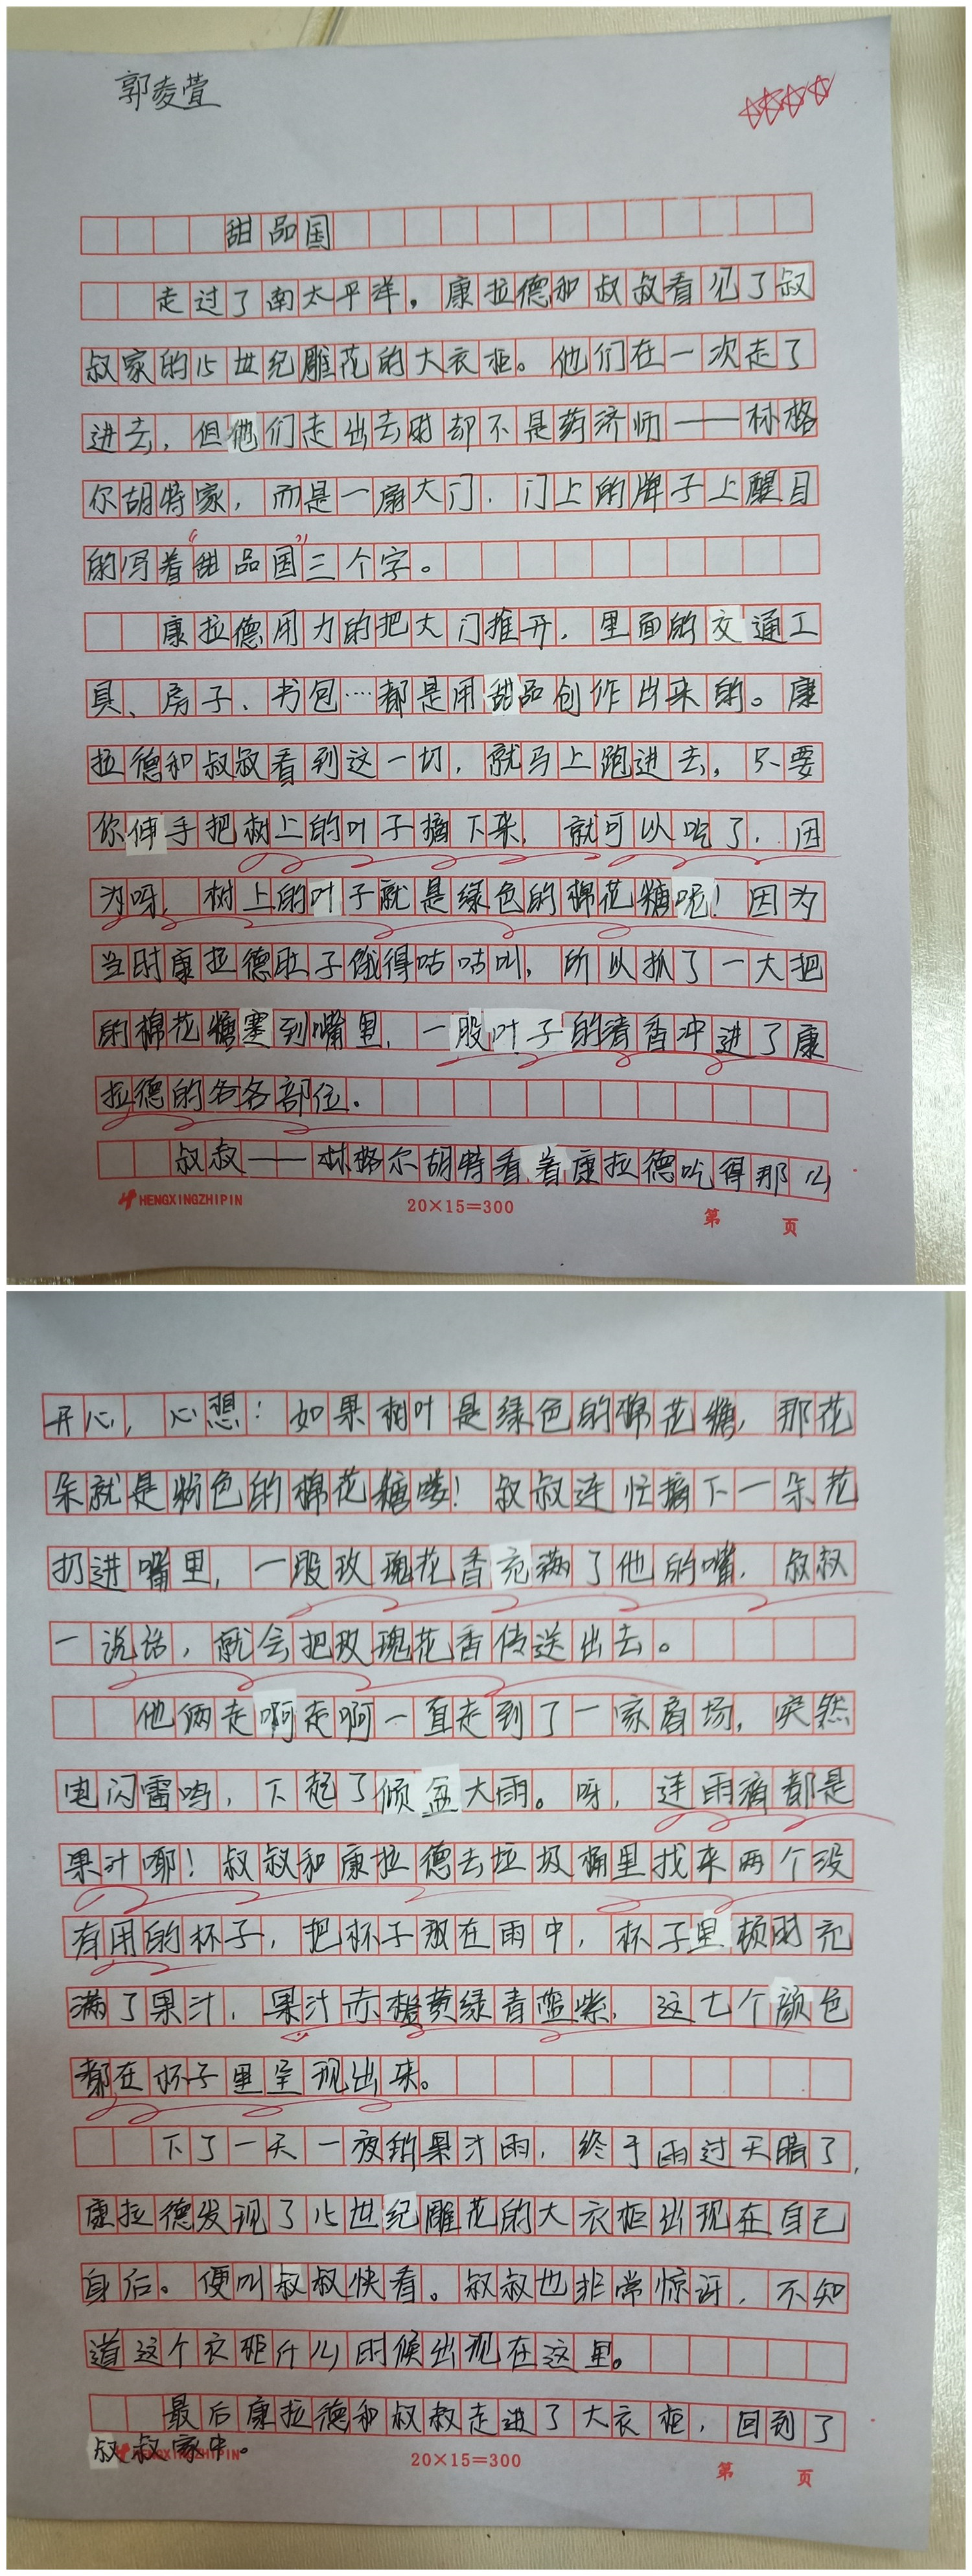 郭凌萱
甜品国
走过了南太平洋。康拉德和叔叔看见了叔
叔家的15世纪雕花的大衣柜。他们在一次走了
进去,但他们走出去时却不是药济师——林格
尔胡特家,而是一扇大门,门上的牌子上醒目
的写着“甜品国”三个字。
康拉德用力的把大门推开,里面的交通工
具、房子、书包……都是用甜品创作出来的。康
拉德和叔叔看到这一切,就马上跑进去,只要
你伸手把树上的叶子摘下来,就可以吃了,因
为呀,树上的叶子就是绿色的棉花糖呢!因为
当时康拉德肚子饿得咕咕叫,所以抓了一大把
的棉花糖塞到嘴里,一股叶子的清香冲进了康
拉德的各各部位。
叔叔——林格尔胡特看着康拉德吃得那么
HENGXINGZHIPIN
20×15=300
第 页
开心,心想:如果树叶是绿色的棉花糖,那花
朵就是粉色的棉花糖喽!叔叔连忙摘下一朵花
扔进嘴里,一股玫瑰花香充满了他的嘴,叔叔
一说话,就会把玫瑰花香传送出去。
他俩走啊走啊一直走到了一家商场,突然
电闪雷鸣,下起了倾盆大雨。呀,连雨滴都是
果汁耶!叔叔和康拉德去垃圾桶里找来两个没
有用的杯子,把杯子放在雨中,杯子里顿时充
满了果汁,果汁赤橙黄绿青蓝紫,这七个颜色
都在杯子里呈现出来。
下了一天一夜的果汁雨,终于雨过天晴了,
康拉德发现了15世纪雕花的大衣柜出现在自己
身后。便叫叔叔快看。叔叔也非常惊讶,不知
道这个衣柜什么时候出现在这里。
最后康拉德和叔叔走进了大衣柜,回到了
叔叔家中。
HENGXINGZHIPIN
20×15=300
第 页